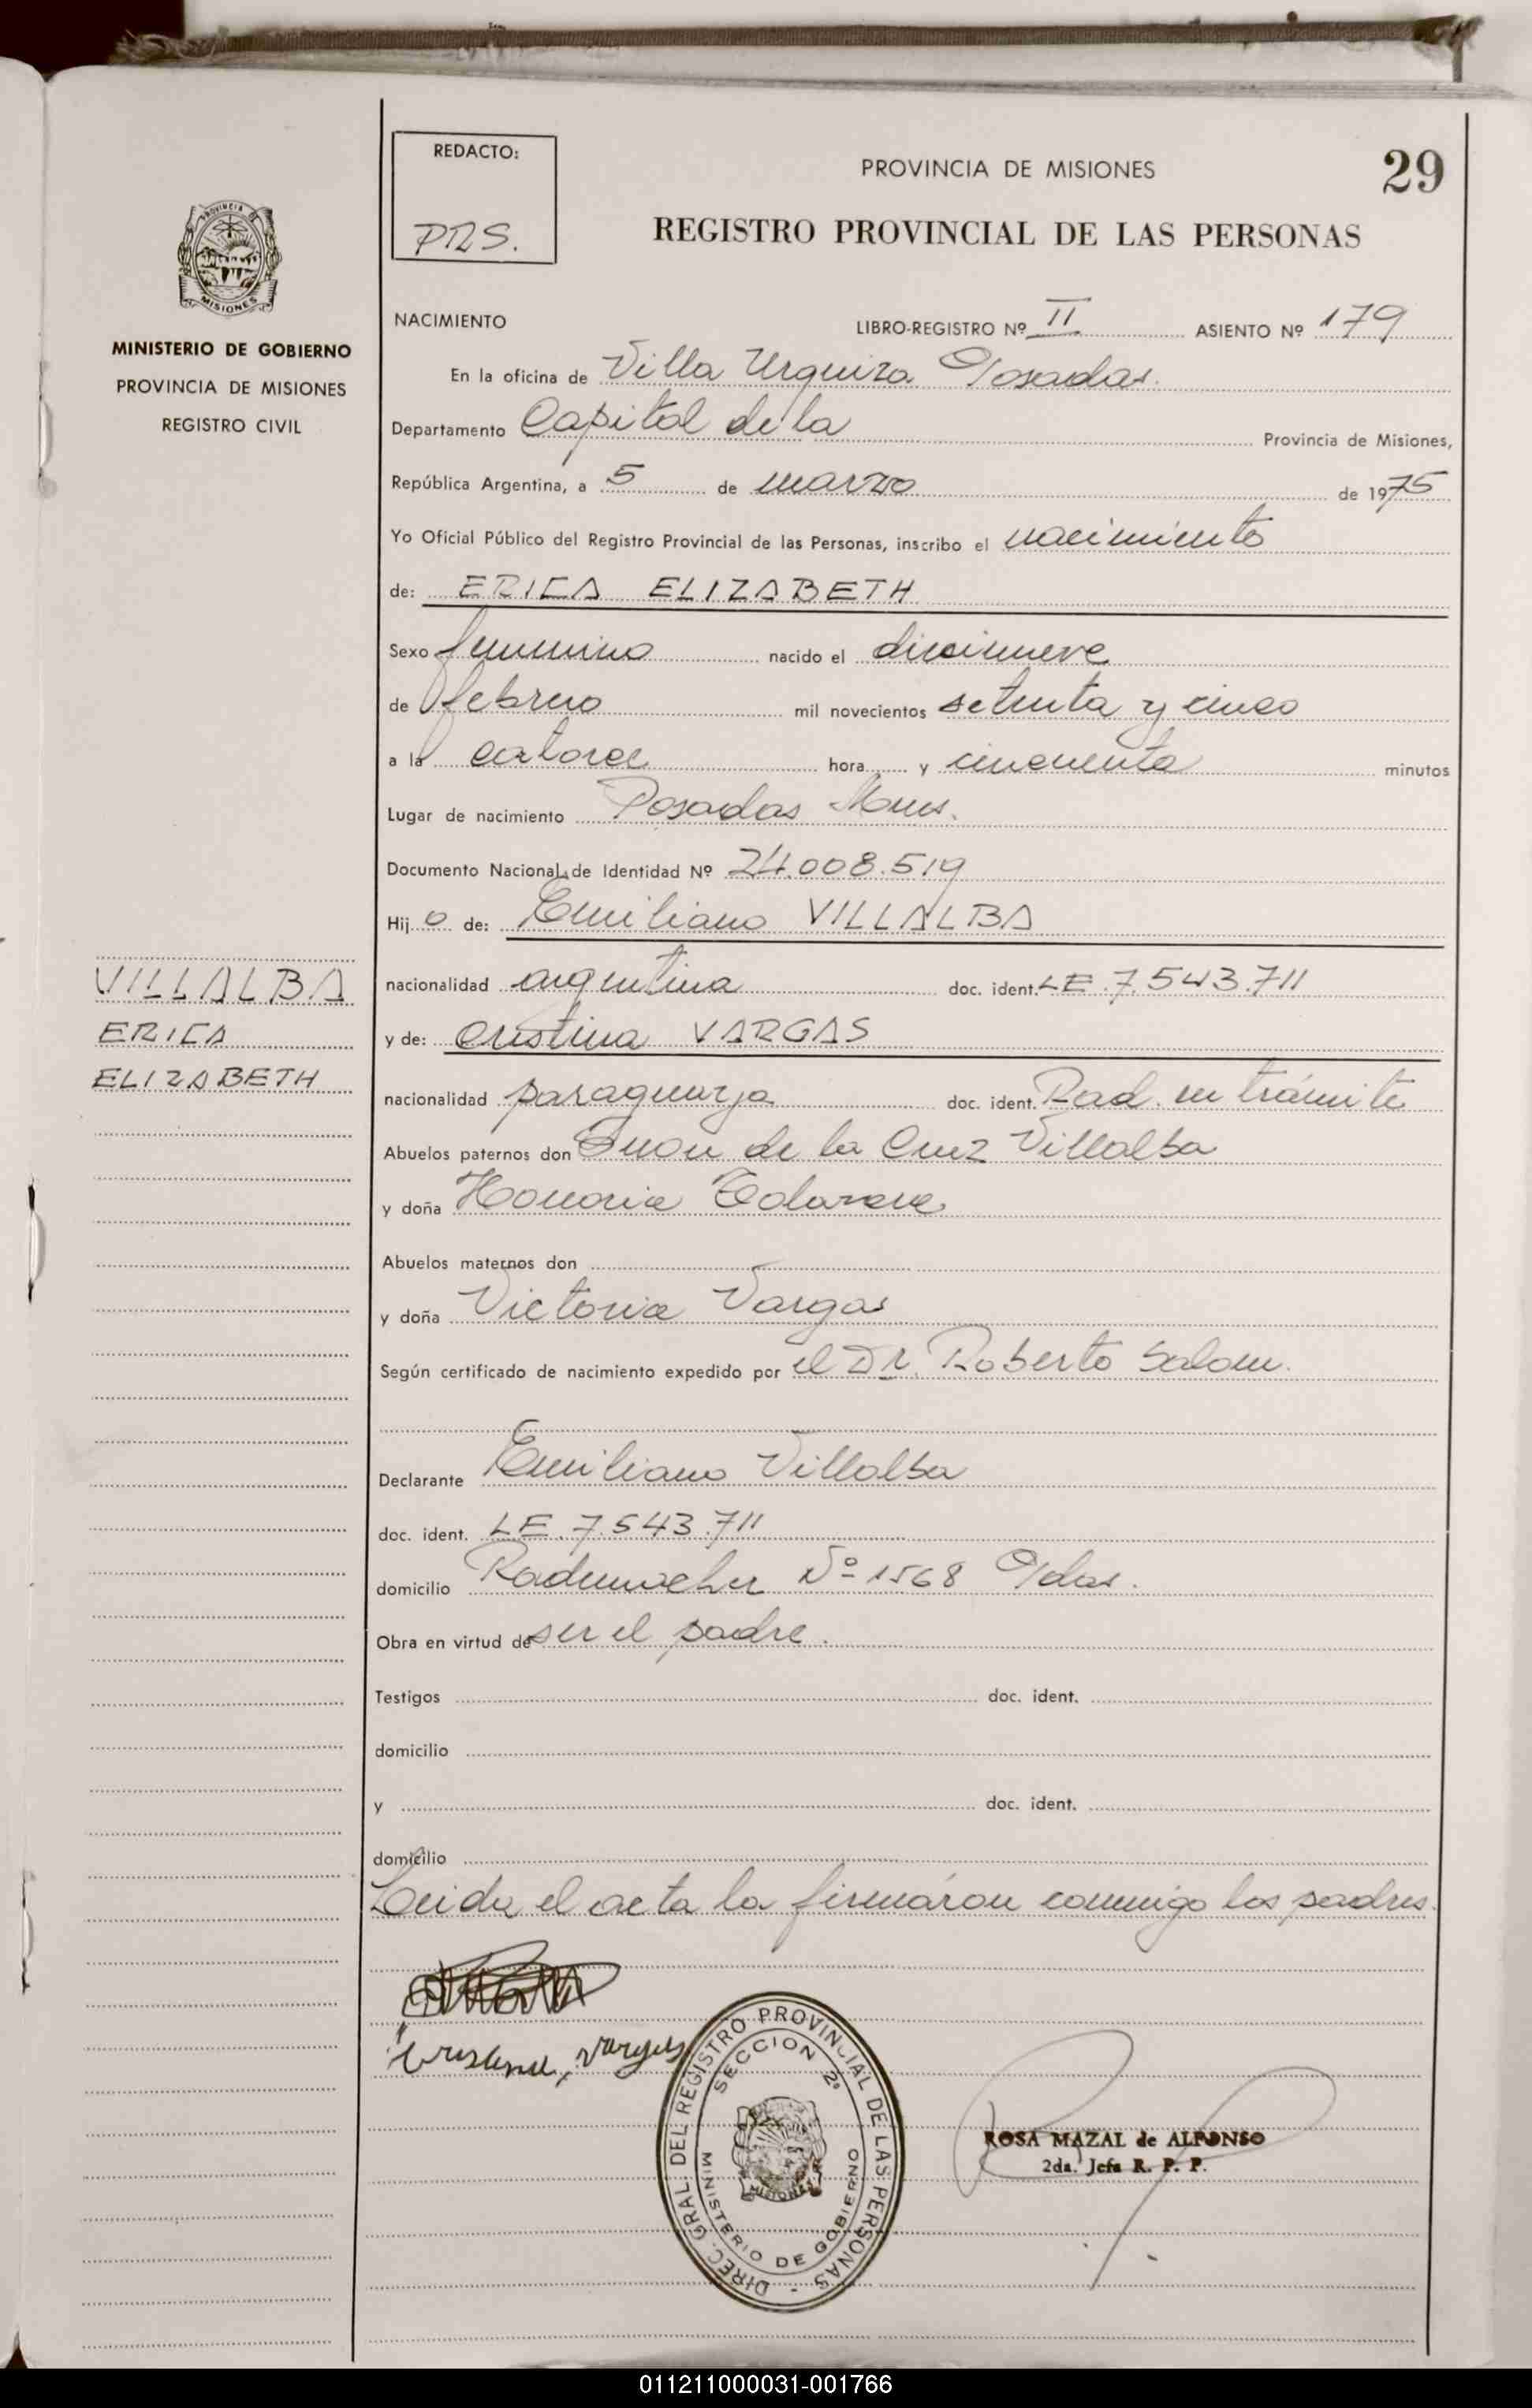 29
REDACTO:
PRS.
PROVINCIA DE MISIONES
REGISTRO PROVINCIAL DE LAS PERSONAS
PROVINCIA DE
MISIONES
MINISTERIO DE GOBIERNO
PROVINCIA DE MISIONES
REGISTRO CIVIL
NACIMIENTO LIBRO-REGISTRO Nº II ASIENTO Nº 179
En la oficina de Villa Urquiza P/osadas.
Departamento Capital de la Provincia de Misiones,
República Argentina, a 5 de marzo de 1975
Yo Oficial Público del Registro Provincial de las Personas, inscribo el nacimiento
de: ERICA ELIZABETH
Sexo femenino nacido el diecinueve
de febrero mil novecientos setenta y cinco
a la catorce hora y cincuenta minutos
Lugar de nacimiento Posadas Mnes.
Documento Nacional de Identidad Nº 24.008.519
Hij o de: Emiliano VILLALBA
nacionalidad argentina doc. ident. LE.7.543.711
y de: Cristina VARGAS
nacionalidad paraguaya doc. ident. Rad. en trámite
VILLALBA
ERICA
ELIZABETH
Abuelos paternos don Juan de la Cruz Villalba
y doña Honoria
Abuelos maternos don
y doña Victoria Vargas
Según certificado de nacimiento expedido por el Dr. Roberto Salom.
Declarante Emiliano Villalba
doc. ident. LE.7.543.711
domicilio Nº 1568 P/das.
Obra en virtud de ser el padre.
Testigos doc. ident.
domicilio
y doc. ident.
domicilio
Leida el acta la firmáron conmigo los padres.
Cristina Vargas
DIREC. GRAL. DEL REGISTRO PROVINCIAL DE LAS PERSONAS -
SECCION 2ª
MINISTERIO DE GOBIERNO
MISIONES
ROSA MAZAL de ALFONSO
2da. Jefa R. P. P.
011211000031-001766